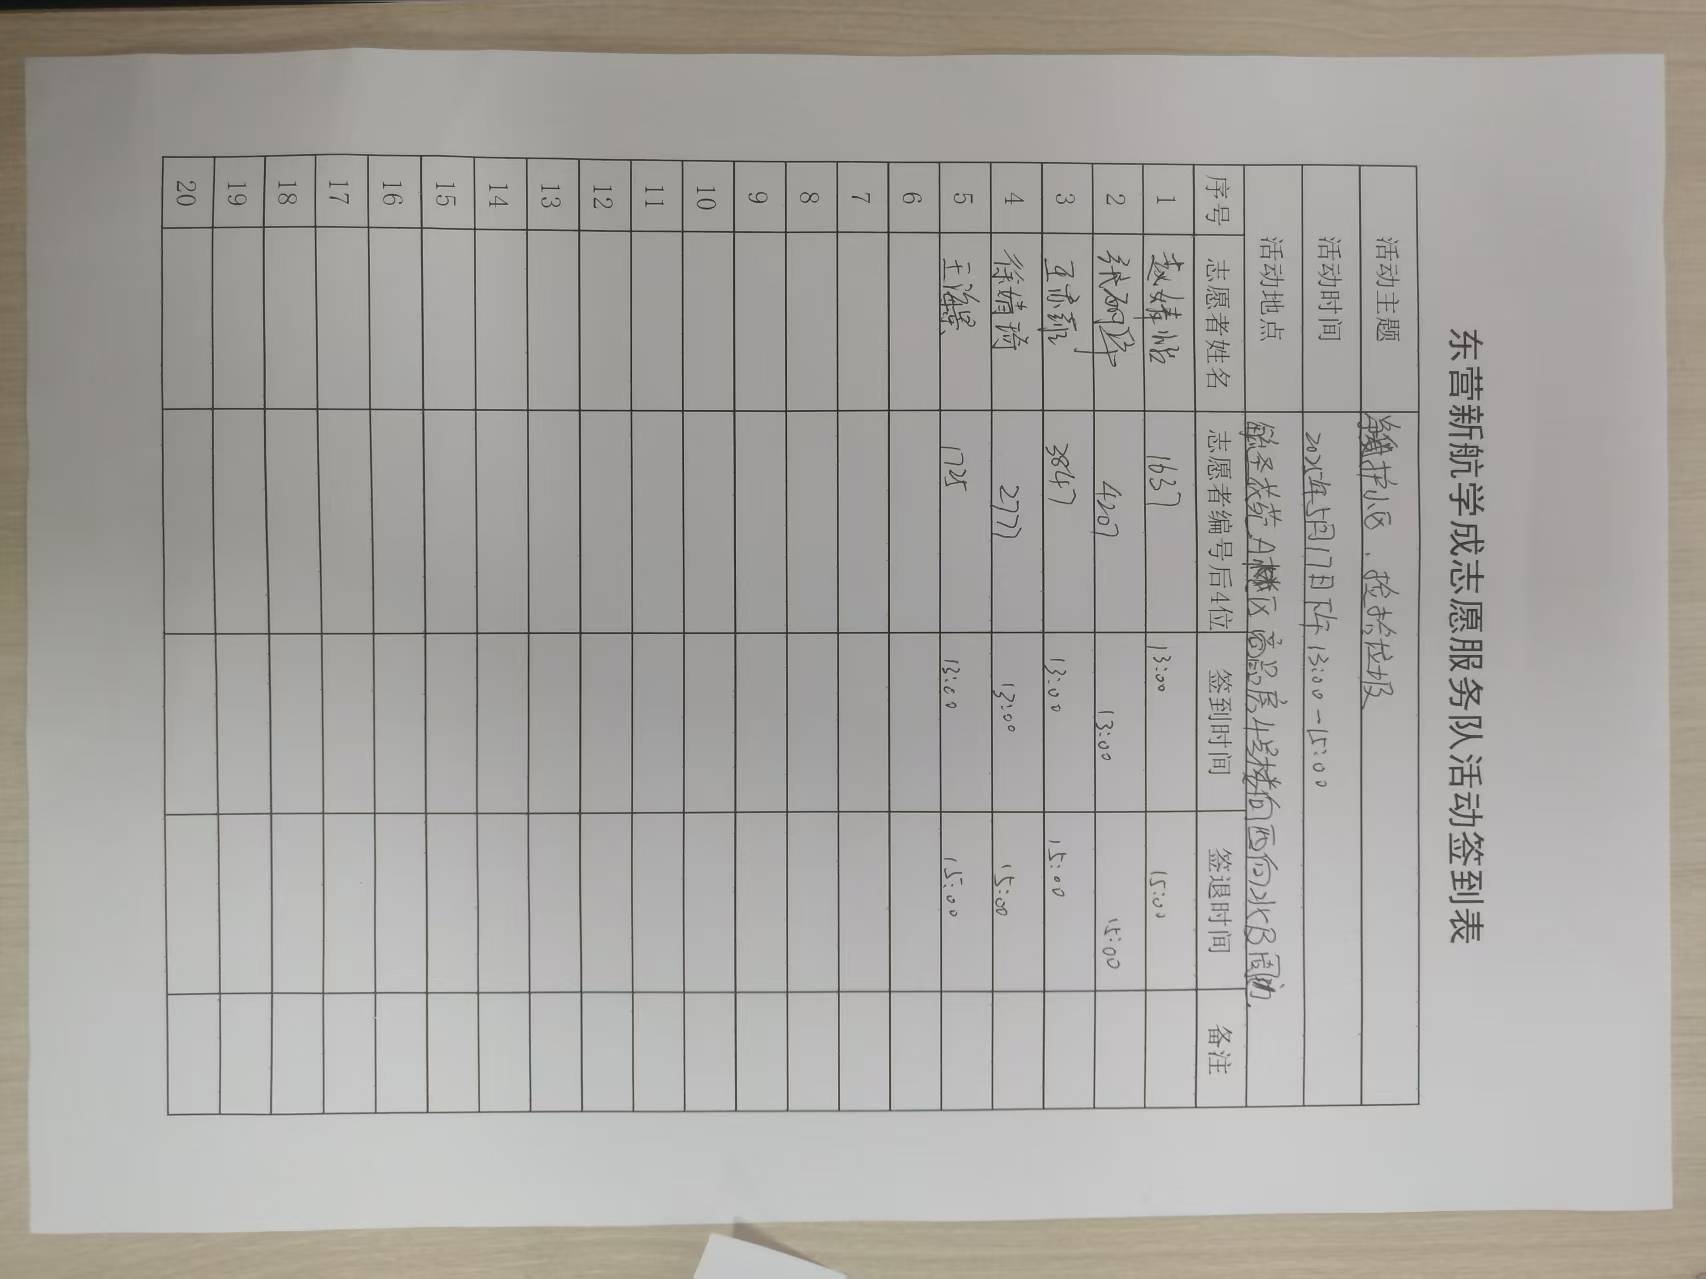 东营新航学成志愿服务队活动签到表
活动主题 维护小区、捡拾垃圾
活动时间 2025年5月17日下午13:00-15:00
活动地点 A区商品房,4号楼向西向水B周
序号 志愿者姓名 志愿者编号后4位 签到时间 签退时间 备注
1 赵婧怡 1637 13:00 15:00
2 张 4207 13:00 15:00
3 王 3847 13:00 15:00
4 徐婧琦 2777 13:00 15:00
5 王海 1725 13:00 15:00
6
7
8
9
10
11
12
13
14
15
16
17
18
19
20